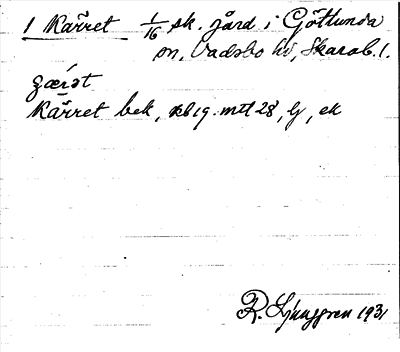 1 Kärret 1/16 sk. jård i Götlunda
sn, Vadsbo hd, Skarab. l.
Kärret bek, kb 19. mtl 28, lj, ek
R. Ljunggren 1931